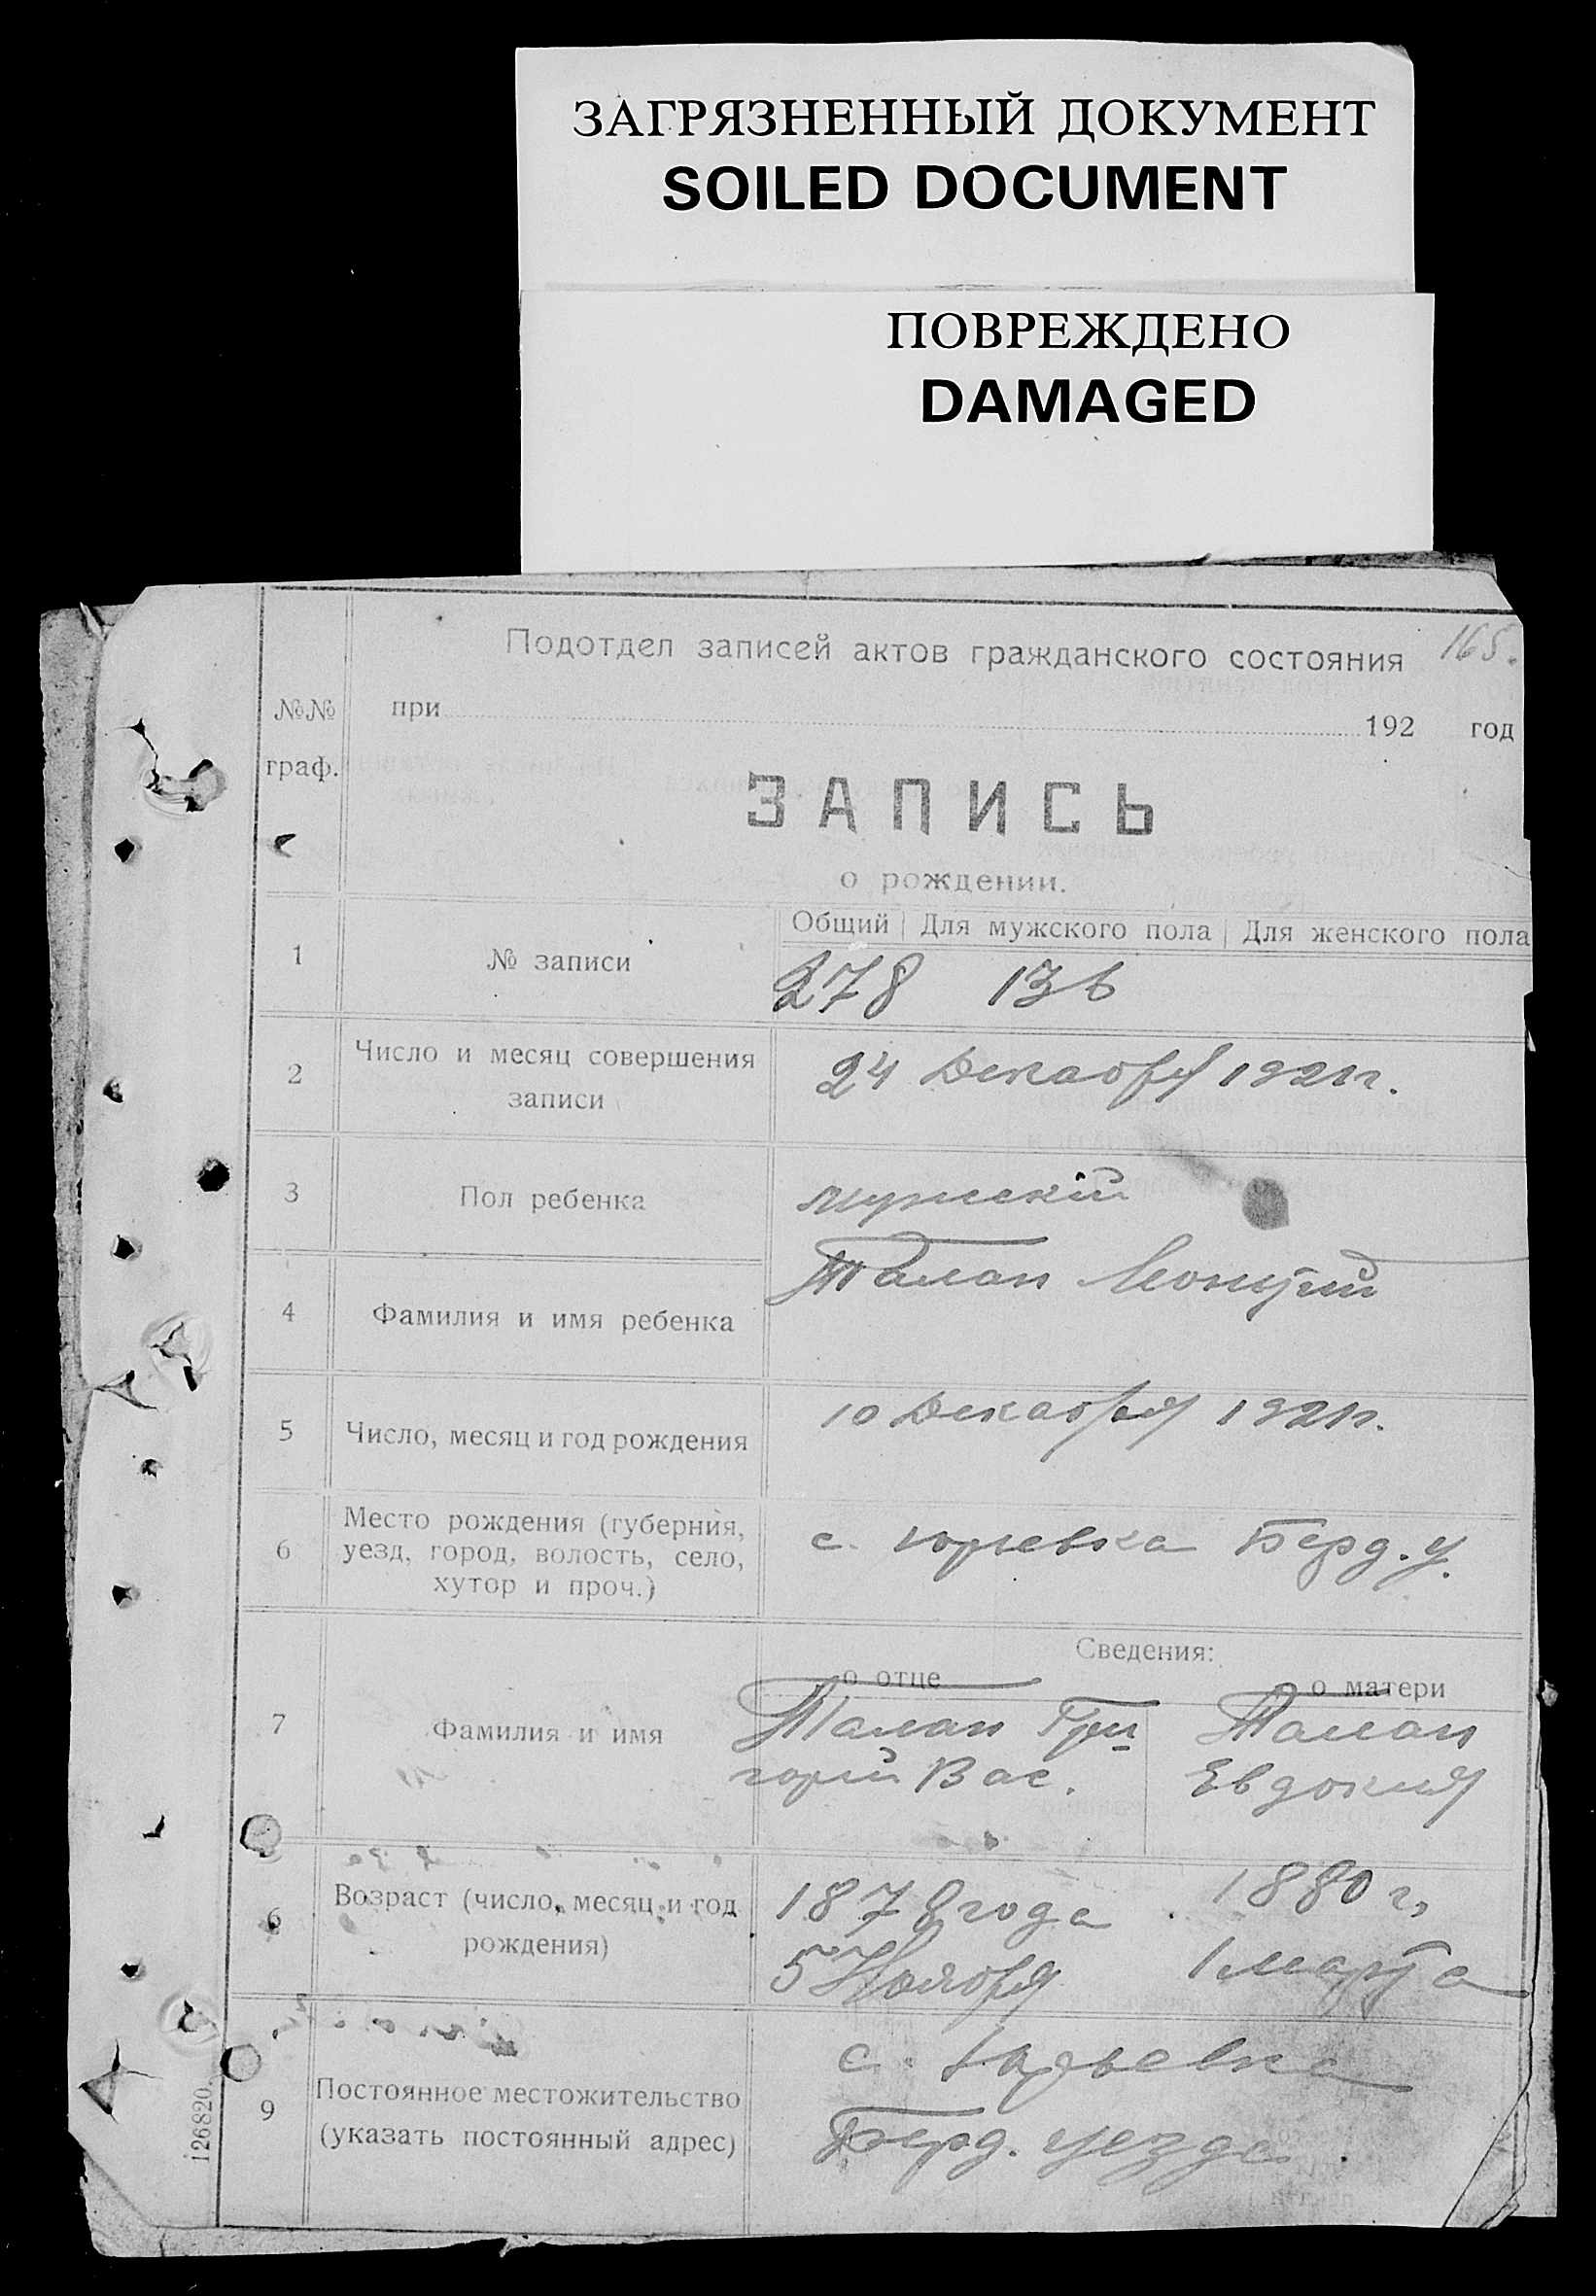 ЗАГРЯЗНЕННЫЙ ДОКУМЕНТ
SOILED DOCUMENT
ПОВРЕЖДЕНО
DAMAGED
165.
Подотдел записей актов гражданского состояния
№№ граф.
при 192 год
ЗАПИСЬ
о рождении.
Общий Для мужского пола Для женского пола
1 № записи 278 136
2 Число и месяц совершения
записи
24 Декабря 1921 г.
3 Пол ребенка мужскій
4 Фамилия и имя ребенка Талан
5 Число, месяц и год рождения 10 Декабря 1921 г.
6 Место рождения (губерния,
уезд, город, волость, село,
хутор и проч.)
с. Юрьевка Берд. у.
Сведения:
о отце о матери
7 Фамилия и имя
Талан Гри-
горий Вас.
Талан
Евдокия
6 Возраст (число, месяц и год
рождения)
1878 года
5 Ноября
1880 г.
1 марта
9 Постоянное местожительство
(указать постоянный адрес)
с. Юрьевка
Берд. уезда
126820.